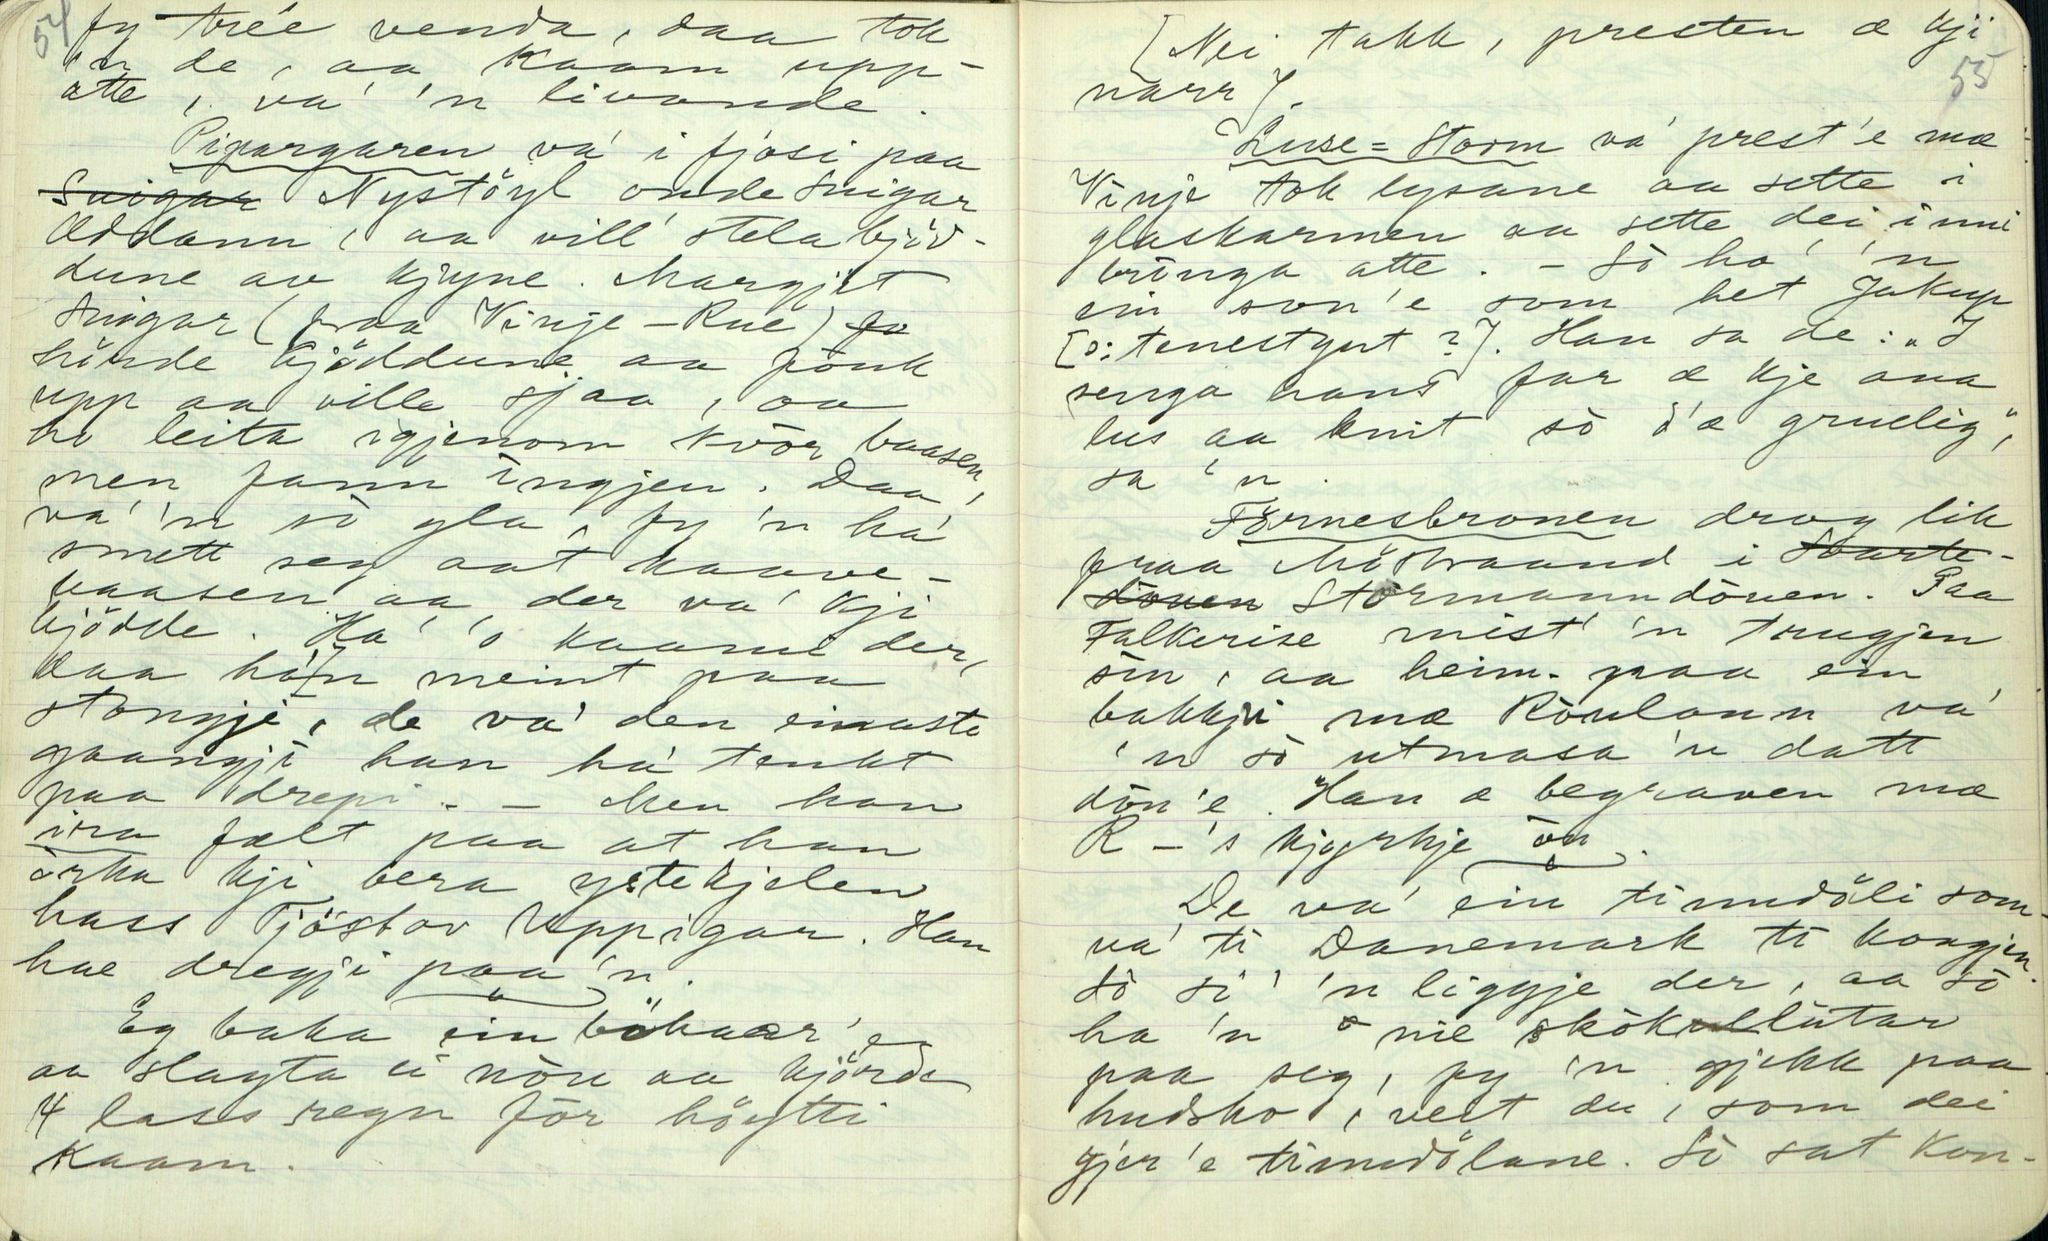 54
fy trée venda, daa tok
'n de, aa kaam upp-
atte, va' 'n livande.
Pipargaren va' i fjosi paa
Suigar Nystöyl onde Suigar
Øddann, aa vill' stela bjöd-
dune av kjyne. Margjit
Suigar (fraa Vinje-Rue) fo
hinde kjöddune aa fönk
upp aa ville sjaa, aa
ho leita igjenom kvör baasen,
men fann ingjen. Daa
va' 'n so gla, fy 'n ha'
smett seg aat kaave-
baasen aa der va' kji
kjödde. Ha' 'o kaame der,
daa ha' 'n meint paa
stongji, de va' den einaste
gaangji han ha' tenkt
paa drepi. – Men han
ira fælt paa at han
orka kji bera ystekjelen
hass Tjöstov Uppigar. Han
hae dregji paa 'n.
Eg baka ein böhaar'e
aa slagta ei nön aa kjörde
4 lass regn för höytti
kaam.
55
[Nei takk, presten æ kji
narr].
Luse-Storm va' prest'e mæ
Vinje tok lysane aa sette i
glaskarmen aa sette dei inni
bringa atte. – So ha' 'n
ein son'e som het Jakup
[ɔ: tenestgut?]. Han sa de: „I
senga hans far æ kje ana
lus aa knit so d'æ gruelig",
sa 'n.
Förnesbronen drog lik
fraa Mösstraand i Svarte-
döuen Störmanndöuen. Paa
Falkerise mist' 'n trugjen
sin, aa heim-paa ein
bakkji mæ Röulann va'
'n so utmasa 'n datt
dön'e. Han æ begraven mæ
R–'s kjyrkje ön.
De va' ein tinndöli som
va' ti Danemark ti kongjen.
So si' 'n liggje der, aa so
ha 'n nie skökullutar
paa seg, fy 'n gjekk paa
hudsko, veit du, som dei
gjer'e tinndölane. So sat kon-